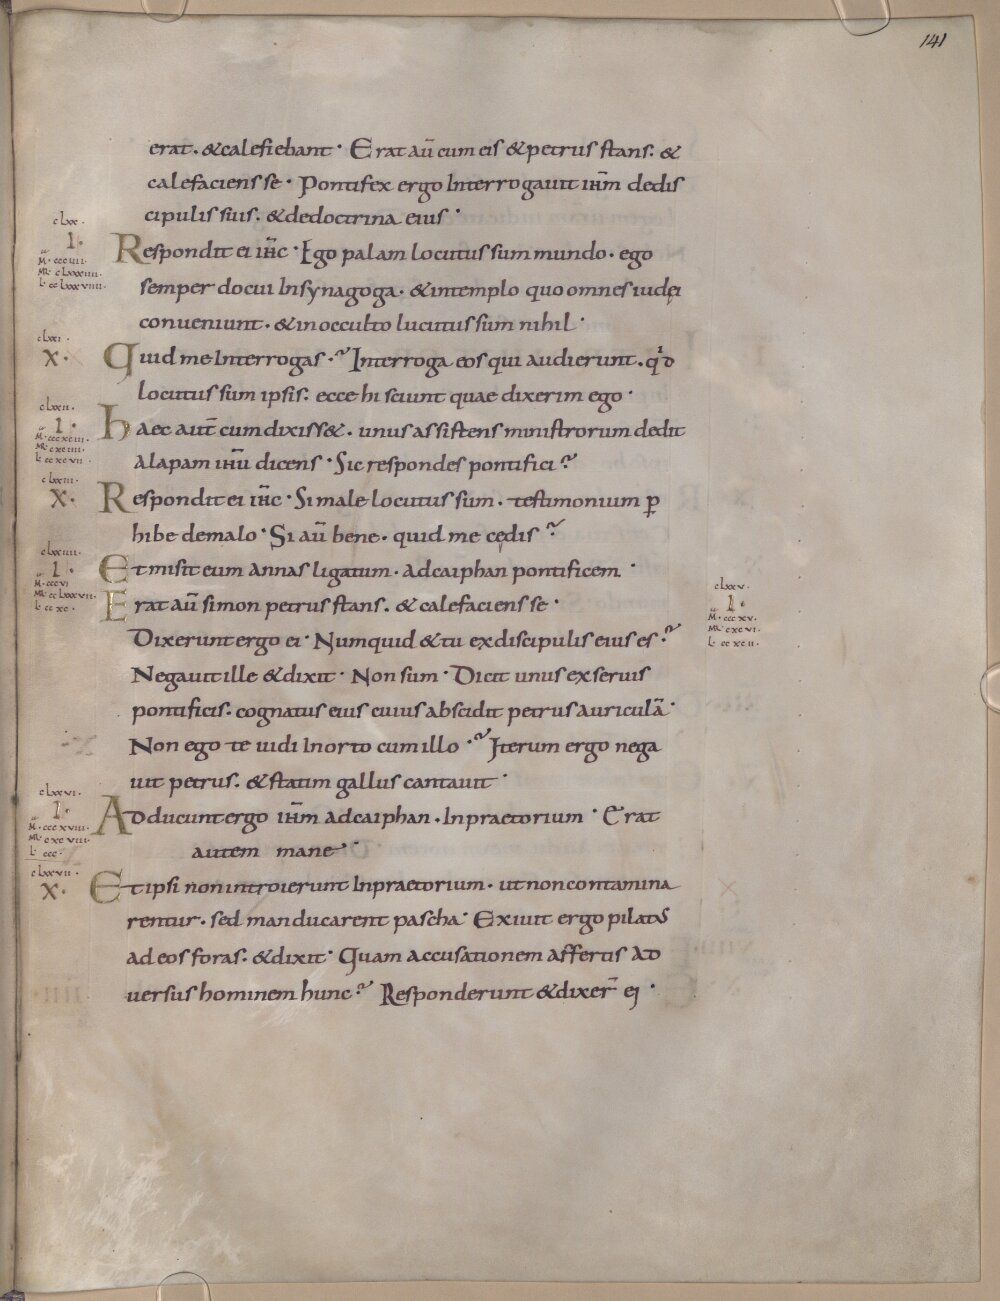 141
erat. &calefiebant· Erat aū cum eis &petrus stans. &
calefaciens se· Pontifex ergo Interrogauit ihm̄ dedis
cipulis suis. &dedoctrina eius·
clxx.
I.
M. cccuii.
MR. clxxxiiii.
L. cclxxxviiii.
Respondit ei ihc̄· Ego palam locutus sum mundo. ego
semper docui Insynagoga. &intemplo quo omnes iudęi
conueniunt. &inocculto lucutus sum nihil·
clxxi.
X.
Quid me Interrogas·? Interroga eos qui audierunt. qd
locutus sum ipsis. ecce hi sciunt quae dixerim ego·
clxxii.
I.
M. cccxciii.
MR. cxciiii.
L. ccxcvii.
haec aut̄ cum dixiss&. unus assistens ministrorum dedit
alapam ihū dicens· Sic respondes pontifici?
clxxiii.
X.
Respondit ei ihc̄· Si male locutus sum. testimonium p̱
hibe demalo· Si aū bene. quid me cędis?
clxxiiii.
I.
M. cccvi
MR. clxxxvii.
L. ccxc.
Et misit eum annas ligatum. adcaiphan pontificem·
Erat aū simon petrus stans. & calefaciens se·
clxxv.
I.
M. cccxv.
MR. cxcvi.
L. ccxcii.
Dixerunt ergo ei· Numquid &tu exdiscipulis eius es·?
Negauit ille &dixit· Non sum· Dicit unus exseruis
pontificis. cognatus eius cuius abscidit petrus auriculā·
Non ego te uidi Inorto cum illo·? Iterum ergo nega
uit petrus. &statim gallus cantauit·
clxxvi.
I.
M. cccxviii.
MR. cxcviii.
L. ccc.
Adducunt ergo ihm̄ adcaiphan. Inpraetorium· Erat
autem mane·
clxxvii.
X.
Et ipsi nonintroierunt Inpraetorium. ut non contamina
rentur. sed manducarent pascha· Exiuit ergo pilatus
ad eos foras. &dixit· Quam accusationem affertis ad
uersus hominem hunc? Responderunt &dixer̄ ei·